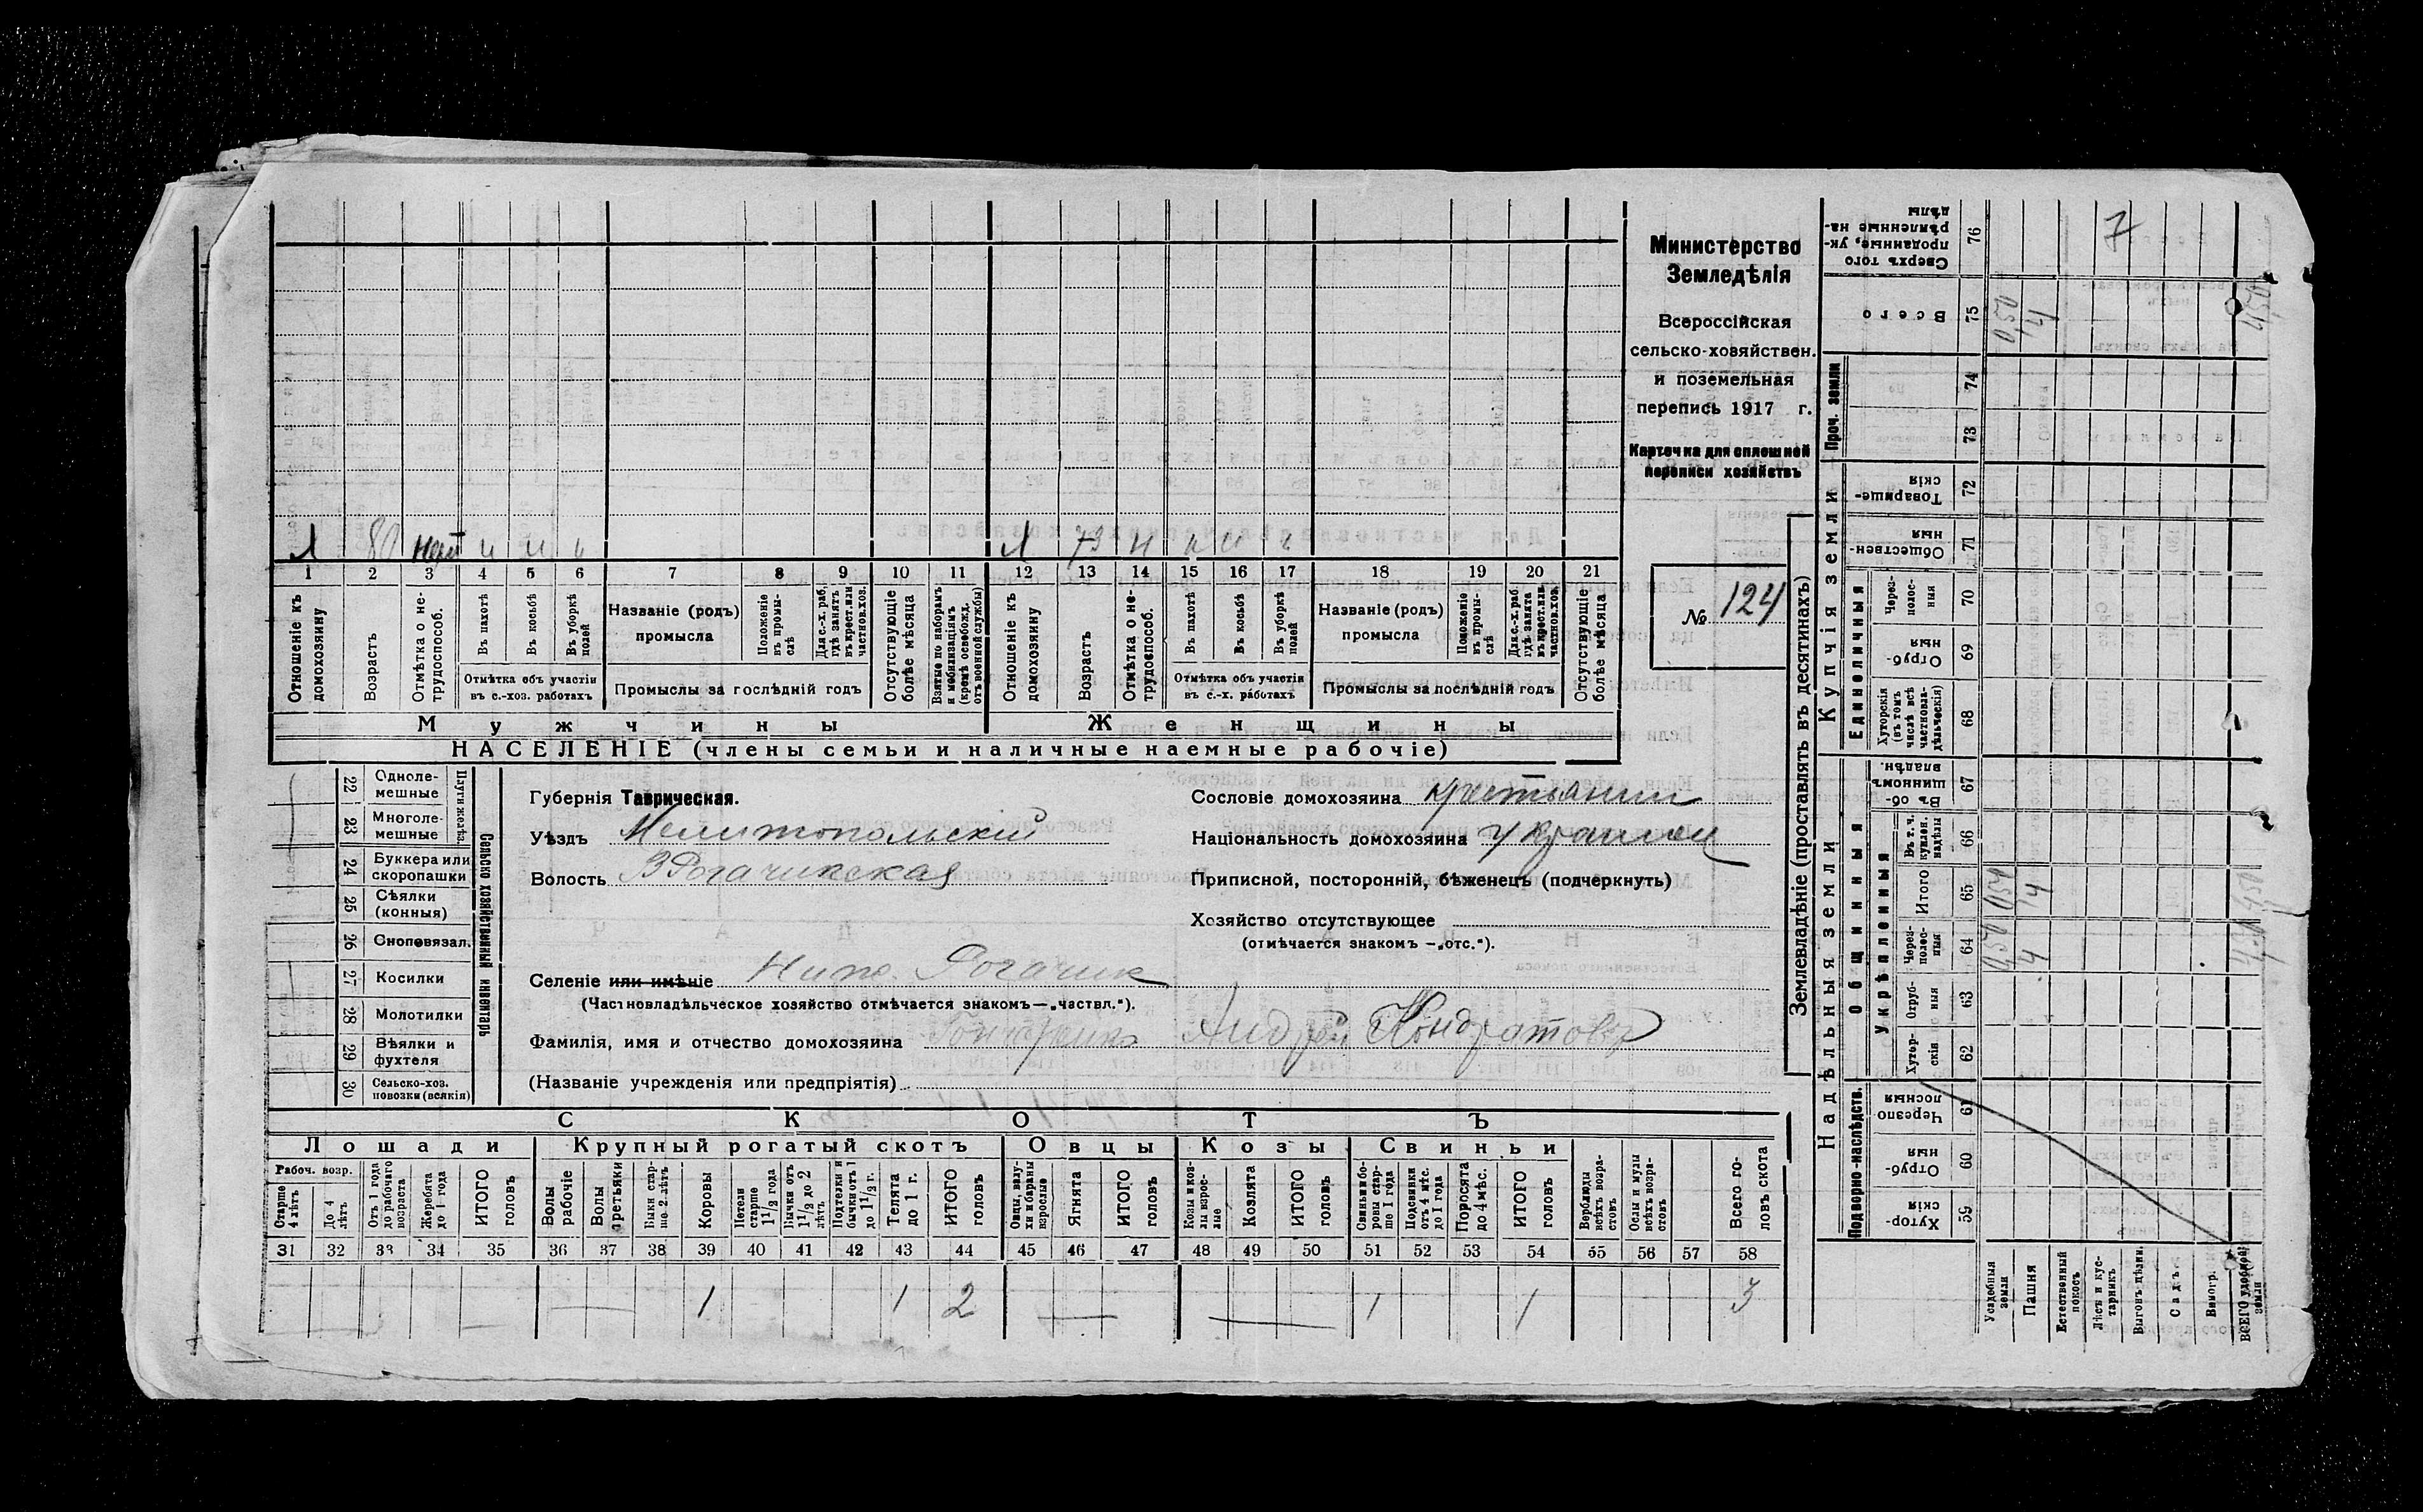 Министерство
Земледѣлія
Всероссійская
сельско-хозяйствен.
и поземельная
перепись 1917 г.
Карточка для сплошной
переписи хозяйствъ
№ 124
1 80 нетр н н н
1 73 н н н н
1 2 3 4 5 6 7 8 9 10 11 12 13 14 15 16 17 18 19 20 21
Отношеніе къ домохозяину
Возрастъ
Отмѣтка о не-трудоспособ.
Въ пахотѣ
Въ косьбѣ
Въ уборкѣ полей
Отмѣтка объ участіи въ с.-хоз. работахъ
Названіе (родъ) промысла
Положеніе въ промы-слѣ
Для с.-х. раб. гдѣ занятъ въ крест. или частнов. хоз.
Промыслы за послѣдній годъ
Отсутствующіе болѣе мѣсяца
Взятые по наборамъ и мобилизаціямъ (кромѣ освобожд. отъ военной службы)
Отношеніе къ домохозяину
Возрастъ
Отмѣтка о не-трудоспособ.
Въ пахотѣ
Въ косьбѣ
Въ уборкѣ полей
Отмѣтка объ участіи въ с.-х. работахъ
Названіе (родъ) промысла
Положеніе въ промы-слѣ
Для с.-х. раб. гдѣ занята въ крест. или частнов. хоз.
Промыслы за послѣдній годъ
Отсутствующіе болѣе мѣсяца
Мужчины Женщины
НАСЕЛЕНІЕ (члены семьи и наличные наемные рабочіе)
Сельско хозяйственный инвентарь
Плуги желѣз.
22 Одноле-мешные
23 Многоле-мешные
24 Буккера или скоропашки
25 Сѣялки (конныя)
26 Сноповязал.
27 Косилки
28 Молотилки
29 Вѣялки и фухтеля
30 Сельско-хоз. повозки (всякія)
Губернія Таврическая.
Уѣздъ Мелитопольскій
Волость В Рогачикская
Селеніе или имѣніе Ниж. Рогачик
(Частновладѣльческое хозяйство отмѣчается знакомъ—„частвл.“).
Фамилія, имя и отчество домохозяина Гончаренко Андрей Кондратовъ
(Названіе учрежденія или предпріятія)
Сословіе домохозяина крестьянин
Національность домохозяина Украинец
Приписной, посторонній, бѣженецъ (подчеркнуть)
Хозяйство отсутствующее
(отмѣчается знакомъ —„отс.“).
СКОТЪ
Лошади Крупный рогатый скотъ Овцы Козы Свиньи
Рабоч. возр.
Старше 4 лѣтъ
До 4 лѣтъ
Отъ 1 года до рабочаго возраста
Жеребята до 1 года
ИТОГО головъ
Волы рабочіе
Волы третьяки
Быки стар-ше 2 лѣтъ
Коровы
Нетели старше 1½ года
Бычки отъ 1½ до 2 лѣтъ
Подтелки и бычки отъ 1 до 1½ г.
Телята до 1 г.
ИТОГО головъ
Овцы, валу-хи и бараны взрослые
Ягнята
ИТОГО головъ
Козы и коз-лы взрос-лые
Козлята
ИТОГО головъ
Свиньи и бо-ровы стар-ше 1 года
Подсвинки отъ 4 мѣс. до 1 года
Поросята до 4 мѣс.
ИТОГО головъ
Верблюды всѣхъ возра-стовъ
Ослы и мулы всѣхъ возра-стовъ
Всего го-ловъ скота
31 32 33 34 35 36 37 38 39 40 41 42 43 44 45 46 47 48 49 50 51 52 53 54 55 56 57 58
1 1 2 1 1 3
Землевладѣніе (проставлять въ десятинахъ)
Надѣльныя земли Купчія земли Проч. земли
Подворно-наслѣдств.
Общинныя
Укрѣпленныя
Единоличныя
Хутор-скія 59
Отруб-ныя 60
Черезпо-лосныя 61
Хутор-скія 62
Отруб-ныя 63
Черезполос-ныя 64 0,50 4
Итого 65 0,50 4
Въ т. ч. куплен. надѣлы 66
Въ об-щинномъ владѣн. 67
Хуторскія (въ томъ числѣ всѣ частновла-дѣльческія) 68
Отруб-ныя 69
Черезполос-ныя 70
Обществен-ныя 71
Товарище-скія 72
73
74
Всего 75 0,50 4 4,50
Сверхъ того проданные, ук-рѣпленные на-дѣлы 76
7
Усадебныя земли
Пашня
Естественный покосъ
Лѣсъ и кус-тарникъ
Выгонъ дѣлим.
Садъ
Виногр.
ВСЕГО удобной земли